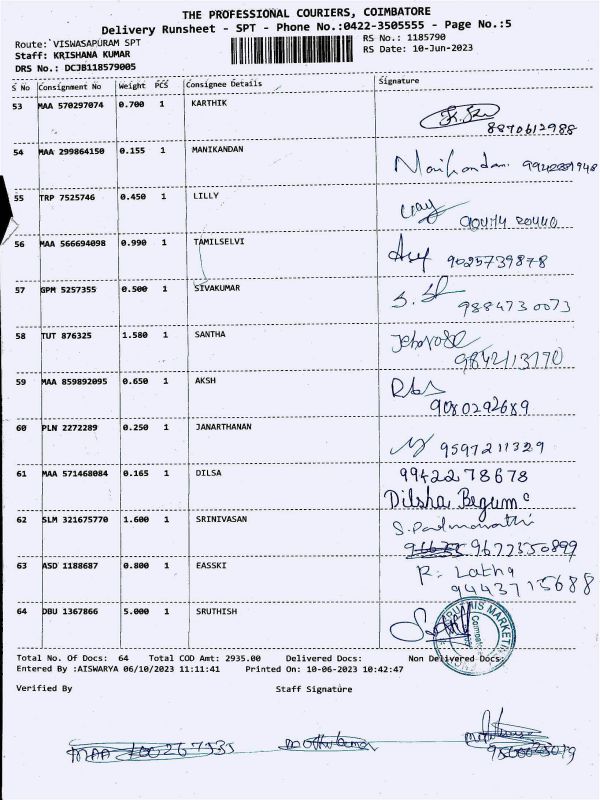 THE PROFESSIONAL COURIERS, COIMBATORE
Delivery Runsheet - SPT - Phone No.:0422-3505555 - Page No.:5
Route: VISWASAPURAM SPT
RS No.: 1185790
Staff: KRISHANA KUMAR
RS Date: 10-Jun-2023
DRS No.: DCJB118579005
S No Consignment No Weight PCS Consignee Details Signature
53 MAA 570297074 0.700 1 KARTHIK
8870612988
54 MAA 299864150 0.155 1 MANIKANDAN
Manikandan
55 TRP 7525746 0.450 1 LILLY
56 MAA 566694098 0.990 1 TAMILSELVI
9025739878
57 GPM 5257355 0.500 1 SIVAKUMAR
9884730073
58 TUT 876325 1.580 1 SANTHA
9842113770
59 MAA 859892095 0.650 1 AKSH
9080292689
60 PLN 2272289 0.250 1 JANARTHANAN
9597211329
61 MAA 571468084 0.165 1 DILSA
9942278678
Dilsha Begum
62 SLM 321675770 1.600 1 SRINIVASAN
S. Padmavathi
9677350899
63 ASD 1188687 0.800 1 EASSKI
R. Latha
9443715688
64 DBU 1367866 5.000 1 SRUTHISH
Total No. Of Docs: 64 Total COD Amt: 2935.00 Delivered Docs: Non Delivered Docs:
Entered By :AISWARYA 06/10/2023 11:11:41 Printed On: 10-06-2023 10:42:47
Verified By Staff Signature